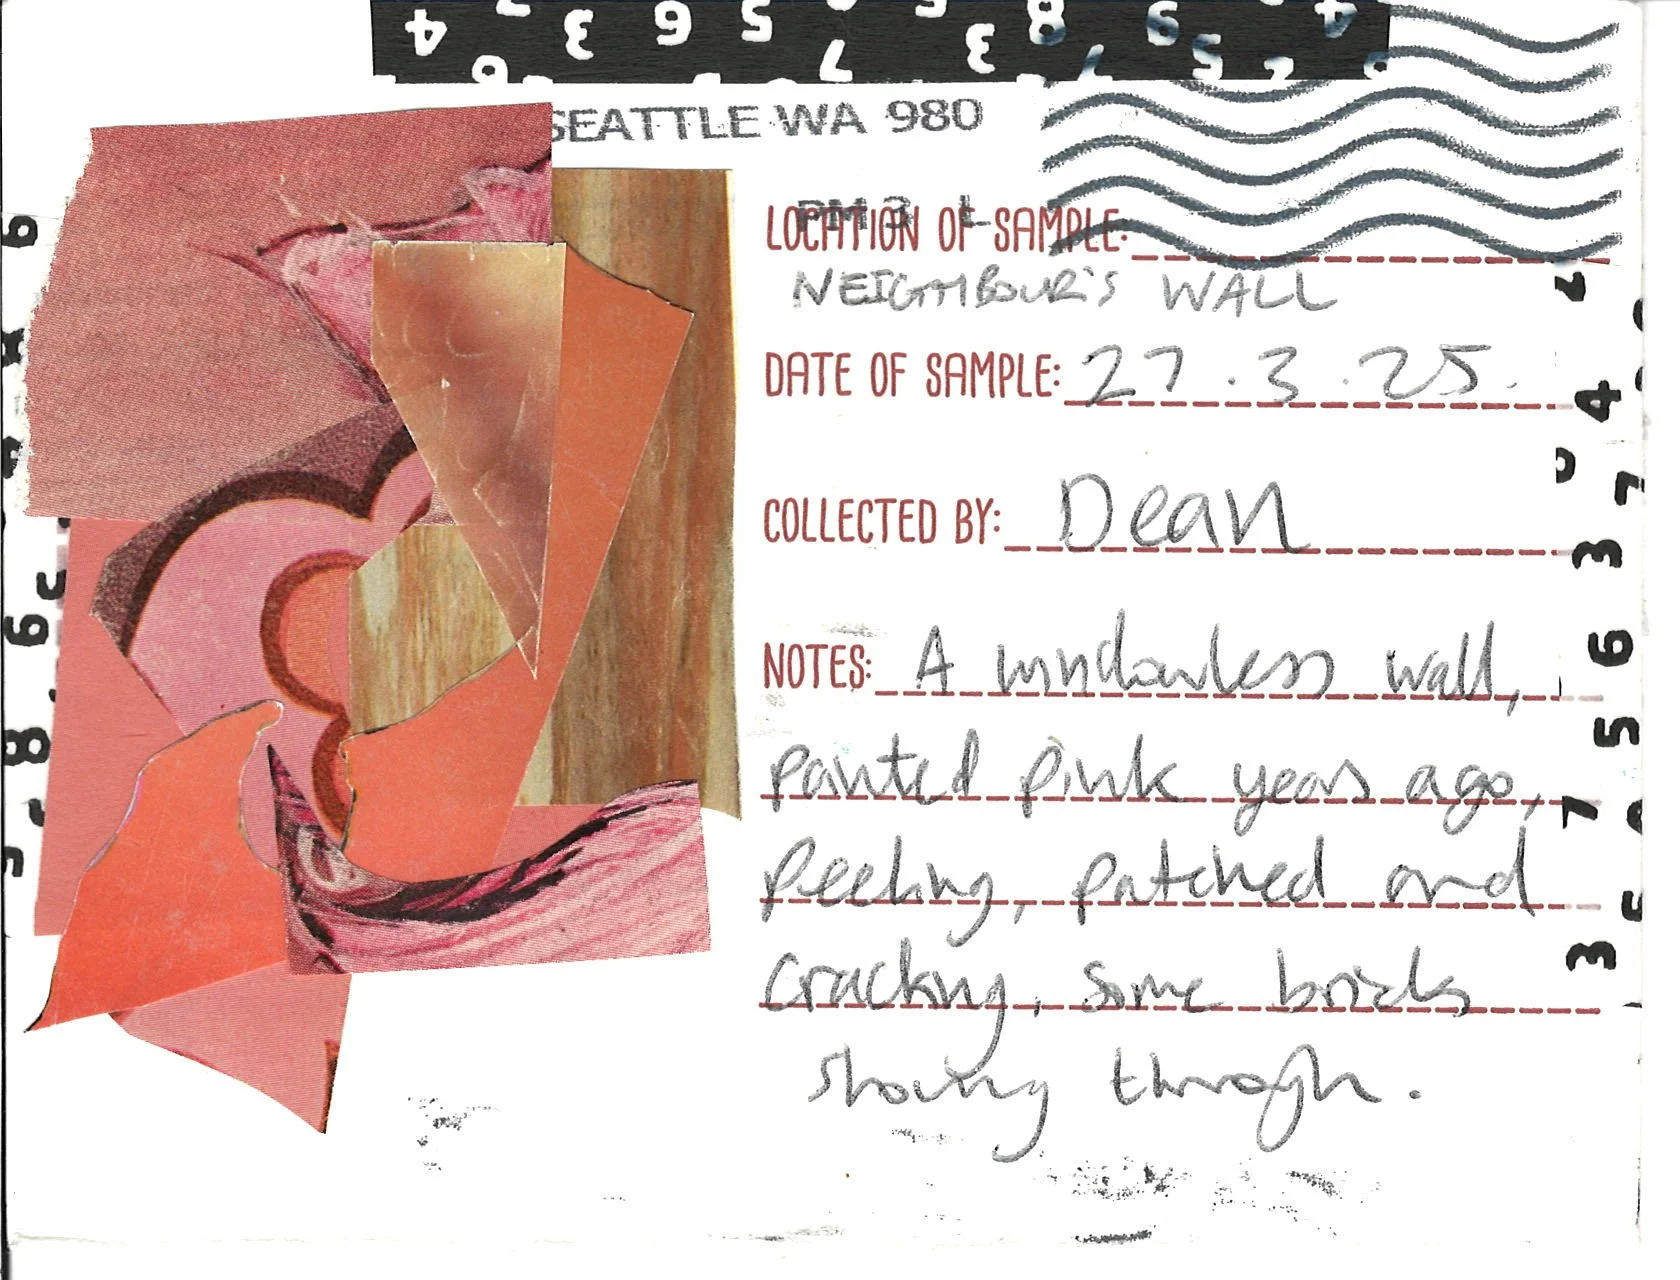 SEATTLE WA 980
LOCATION OF SAMPLE:
NEIGHBOUR'S WALL
DATE OF SAMPLE: 27.3.25.
COLLECTED BY: Dean
NOTES: A windowless wall,
painted pink years ago,
peeling, patched and
cracking, some bricks
showing through.